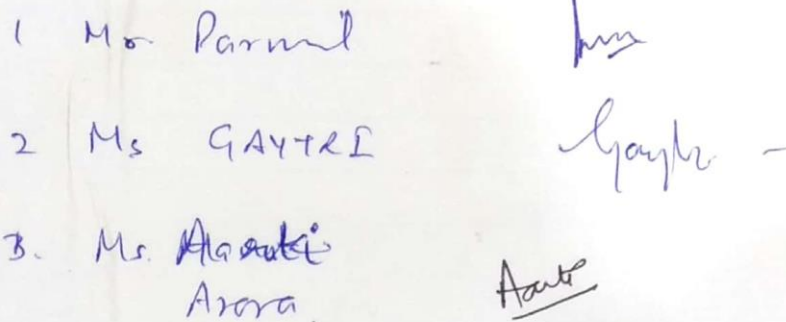 1 Mr. Parmil
2 Ms GAYTRI Gaytri
3. Ms. Aarti Aarti
Arora